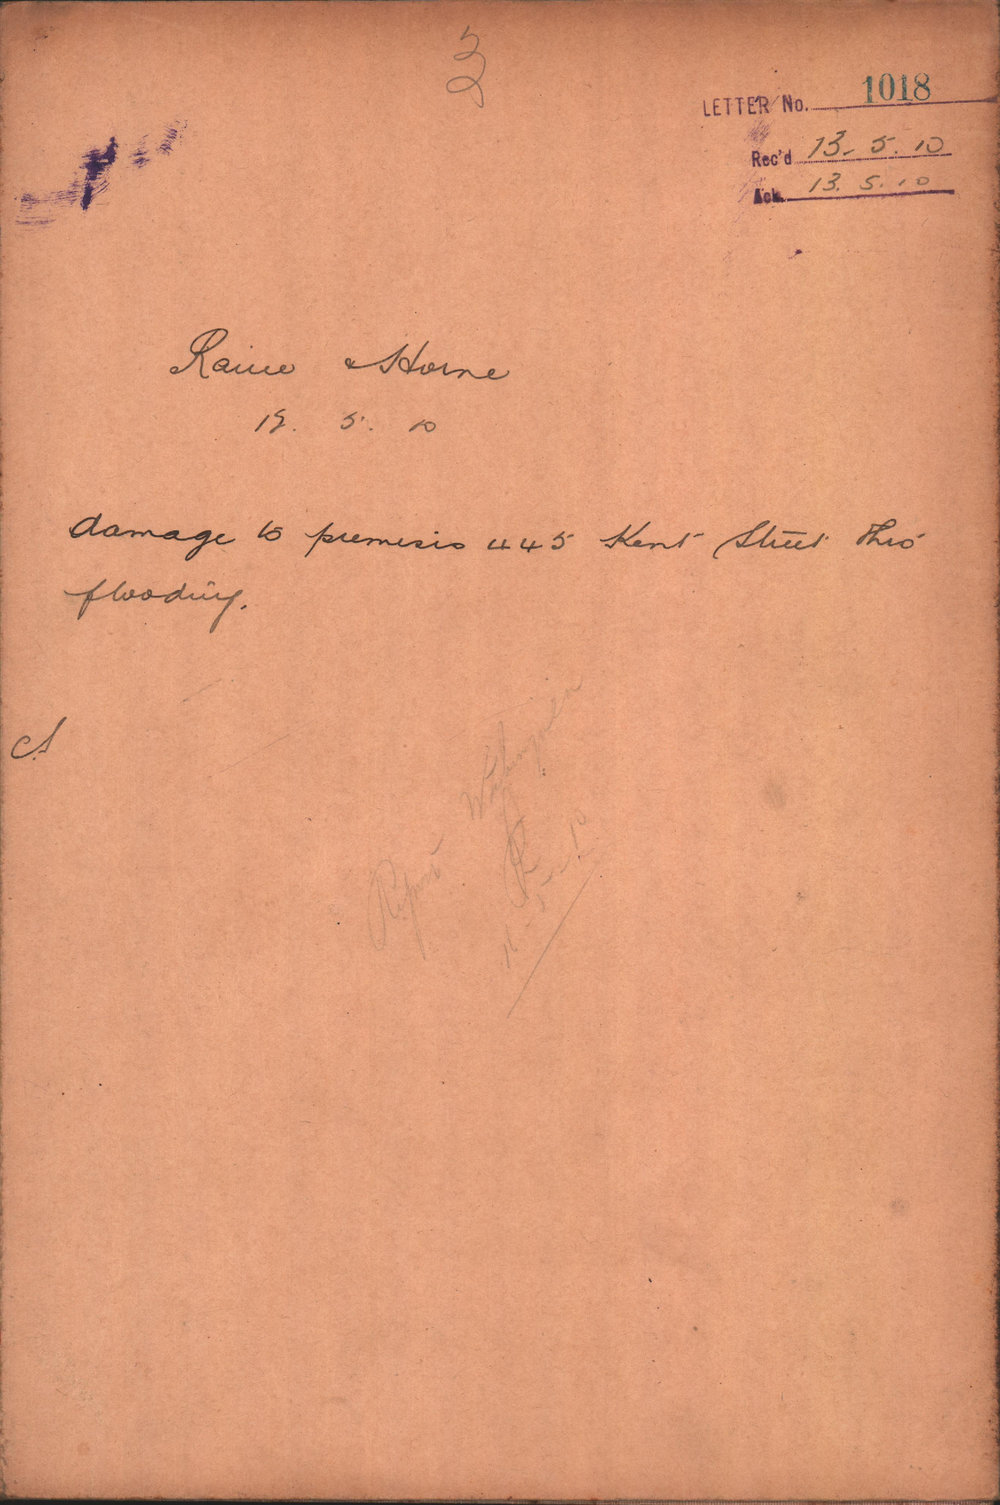 3
LETTER No. 1018
Rec'd 13. 5. 10
Ack. 13. 5. 10
Raine & Horne
5. 10
damage to premisis 445 Kent Street thro
flooding.
Report